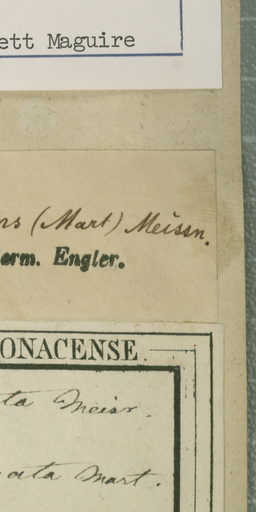 ett Maguire
ns (Mart) Meissn.
erm. Engler.
ONACENSE
ta Meisr.
ata Mart.